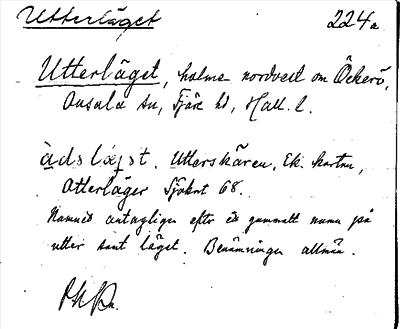 Utterläget 224a
Utterläget, holme nordväst om Öckerö,
Onsala sn, Fjäre hd, Hall. l.
àdslǝjst. Utterskären, Ek. kartan,
Otterläger Sjökort 68.
Namnet antagligen efter ett gammalt namn på
utter samt läget. Benämningen allmän.